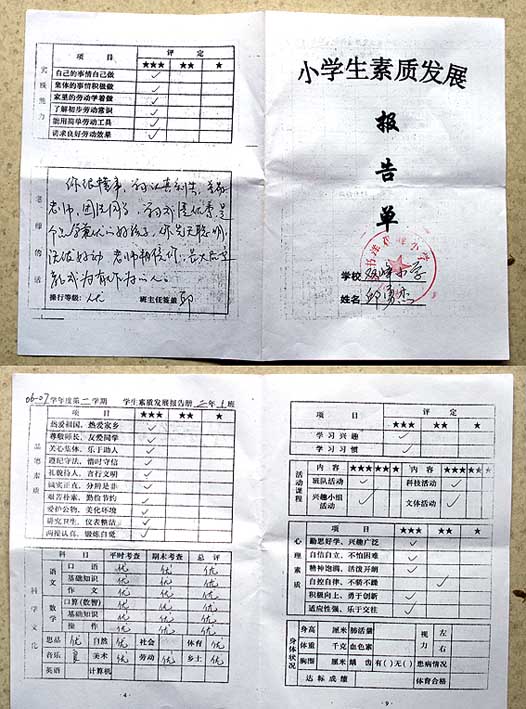 项 目 评 定
★★★ ★★ ★
实践能力
自己的事情自己做 ✓
集体的事情积极做 ✓
家里的劳动学着做 ✓
了解初步劳动常识 ✓
能用简单劳动工具 ✓
讲求良好劳动效果 ✓
老师的话
你很懂事，学习认真刻苦，尊敬
老师，团结同学，学习成绩优秀，是
个品学兼优的好孩子，你先天聪明，
活泼好动，老师相信你，长大后定
能成为有作为的人。
操行等级：优 班主任签盖 邱
小学生素质发展
报
告
单
学校 双峰小学
姓名 邱勇杰
06-07学年度第二学期 学生素质发展报告册 二年1班
项 目 ★★★ ★★ ★
品德素质
热爱祖国，热爱家乡 ✓
尊敬师长，友爱同学 ✓
关心集体，乐于助人 ✓
遵纪守法，惜时守信 ✓
礼貌待人，言行文明 ✓
诚实正直，分辨是非 ✓
艰苦朴素，勤俭节约 ✓
爱护公物，美化环境 ✓
讲究卫生，仪表整洁 ✓
两操认真，锻炼自觉 ✓
科学文化
科 目 平时考查 期末考查 总 评
语文 口 语 优 优 优
基础知识 优 优 优
作 文 优 优 优
数学 口算(数智) 优 优 优
基础知识 优 优 优
操 作 优 优 优
思品 优 自然 优 社会 体育 优
音乐 良 美术 优 劳动 优 乡土 优
英语 计算机
· 4 ·
项 目 评 定
★★★ ★★ ★
学 习 兴 趣 ✓
学 习 习 惯 ✓
活动课程
内 容 ★★★ ★★ ★ 内 容 ★★★ ★★ ★
班队活动 ✓ 科技活动 ✓
兴趣小组活动 ✓ 文体活动 ✓
心理素质
项 目 ★★★ ★★ ★
勤思好学，兴趣广泛 ✓
自信自立，不怕困难 ✓
精神饱满，活泼开朗 ✓
自控自律，不骄不躁 ✓
积极向上，勇于创新 ✓
适应性强，乐于交往 ✓
身体状况
身高 厘米 肺活量 视力 左
体重 千克 血色素 右
胸围 厘米 龋 齿 有( )无( ) 患病情况
达 标 成 绩 体育合格
· 9 ·